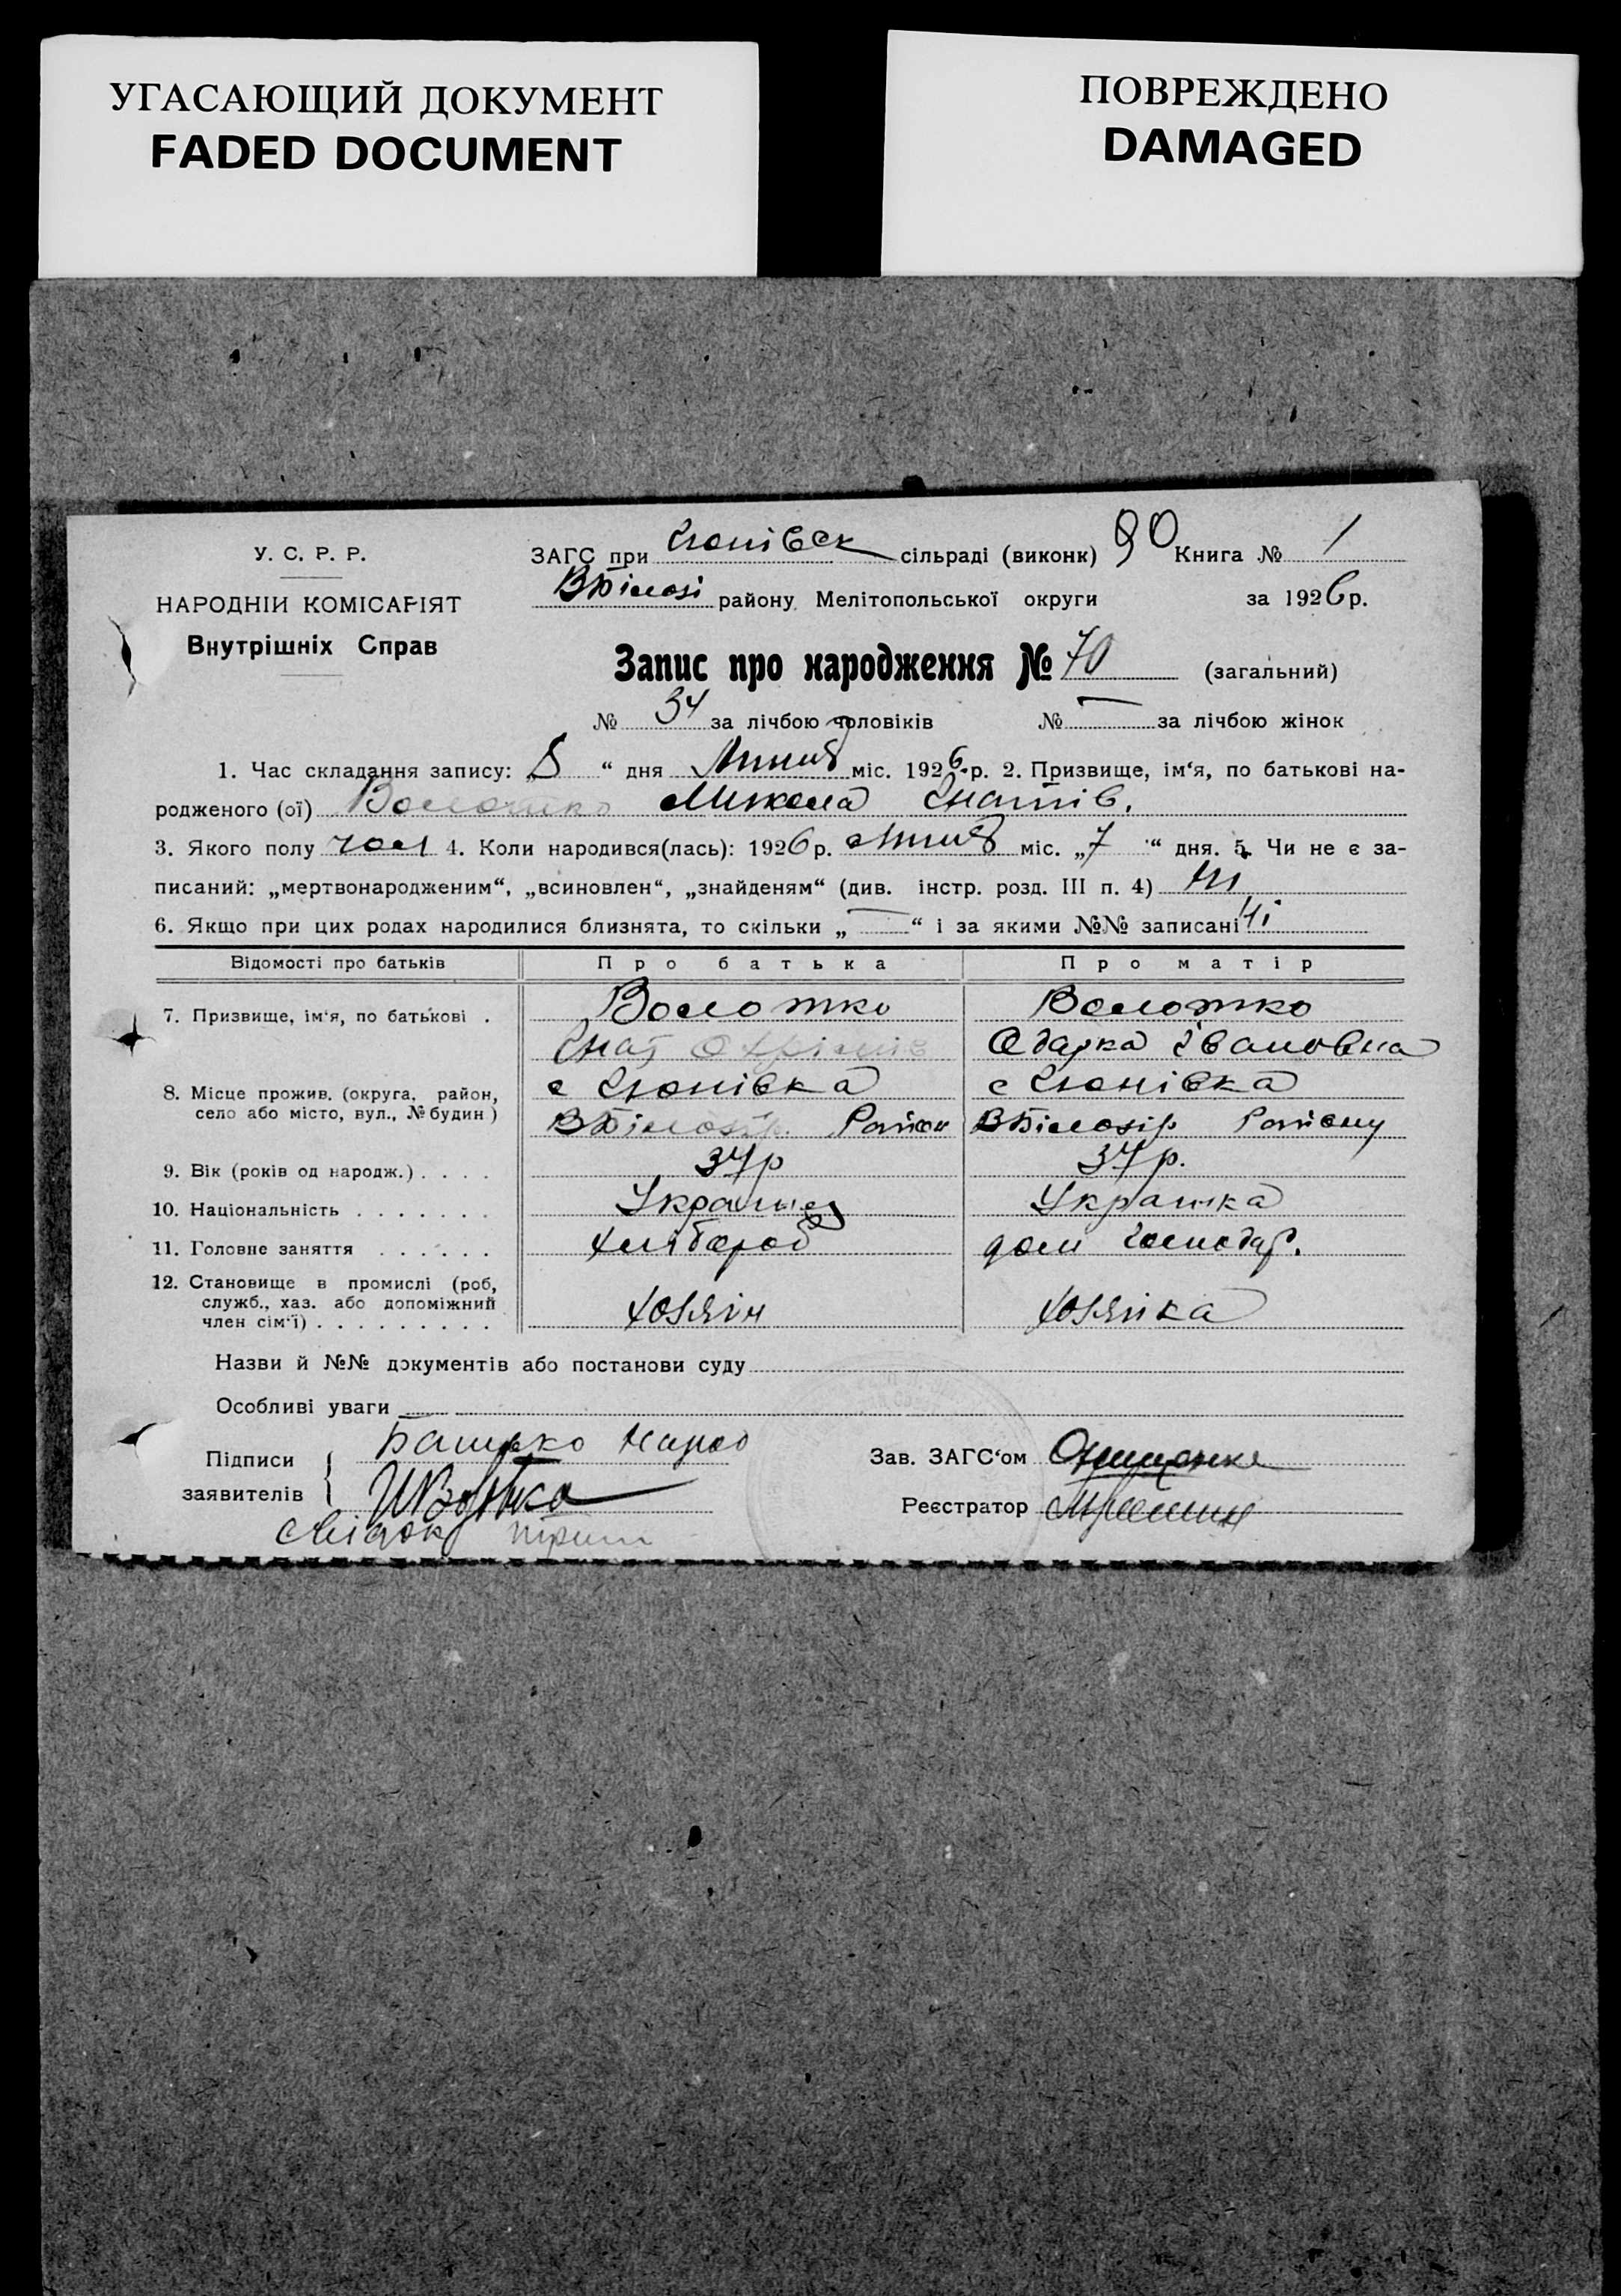 УГАСАЮЩИЙ ДОКУМЕНТ
FADED DOCUMENT
ПОВРЕЖДЕНО
DAMAGED
У. С. Р. Р.
НАРОДНІЙ КОМІСАРІЯТ
Внутрішніх Справ
ЗАГС при сільраді (виконк) 90 Книга № 1
ВБілозі району Мелітопольської округи за 1926 р.
Запис про народження № 70 (загальний)
№ 34 за лічбою чоловіків № — за лічбою жінок
1. Час складання запису: 8 “ дня Липня міс. 1926 р. 2. Призвище, ім‘я, по батькові на-
родженого (ої) Волотко Микола Гнатів.
3. Якого полу чол 4. Коли народився(лась): 1926 р. Липня міс. „7“ дня. 5. Чи не є за-
писаний: „мертвонародженим“, „всиновлен“, „знайденям“ (див. інстр. розд. III п. 4) Ні
6. Якщо при цих родах народилися близнята, то скільки „—“ і за якими №№ записані Ні
Відомості про батьків Про батька Про матір
7. Призвище, ім‘я, по батькові . Волотко Волотко
Гнат Охрімів Одарка Івановна
8. Місце прожив. (округа, район, с с
село або місто, вул., № будин) ВБілозір. Район ВБілозір Району
9. Вік (років од народж.) . . . . 37р 37р.
10. Національність . . . . . . . Українец Українка
11. Головне заняття . . . . . . Хлібороб дом господар.
12. Становище в промислі (роб,
служб., хаз. або допоміжний
член сім‘ї) . . . . . . . . . Хозяін Хозяйка
Назви й №№ документів або постанови суду
Особливі уваги
Підписи
заявителів
Батько
Свідок
Зав. ЗАГС‘ом Онищенко
Реєстратор